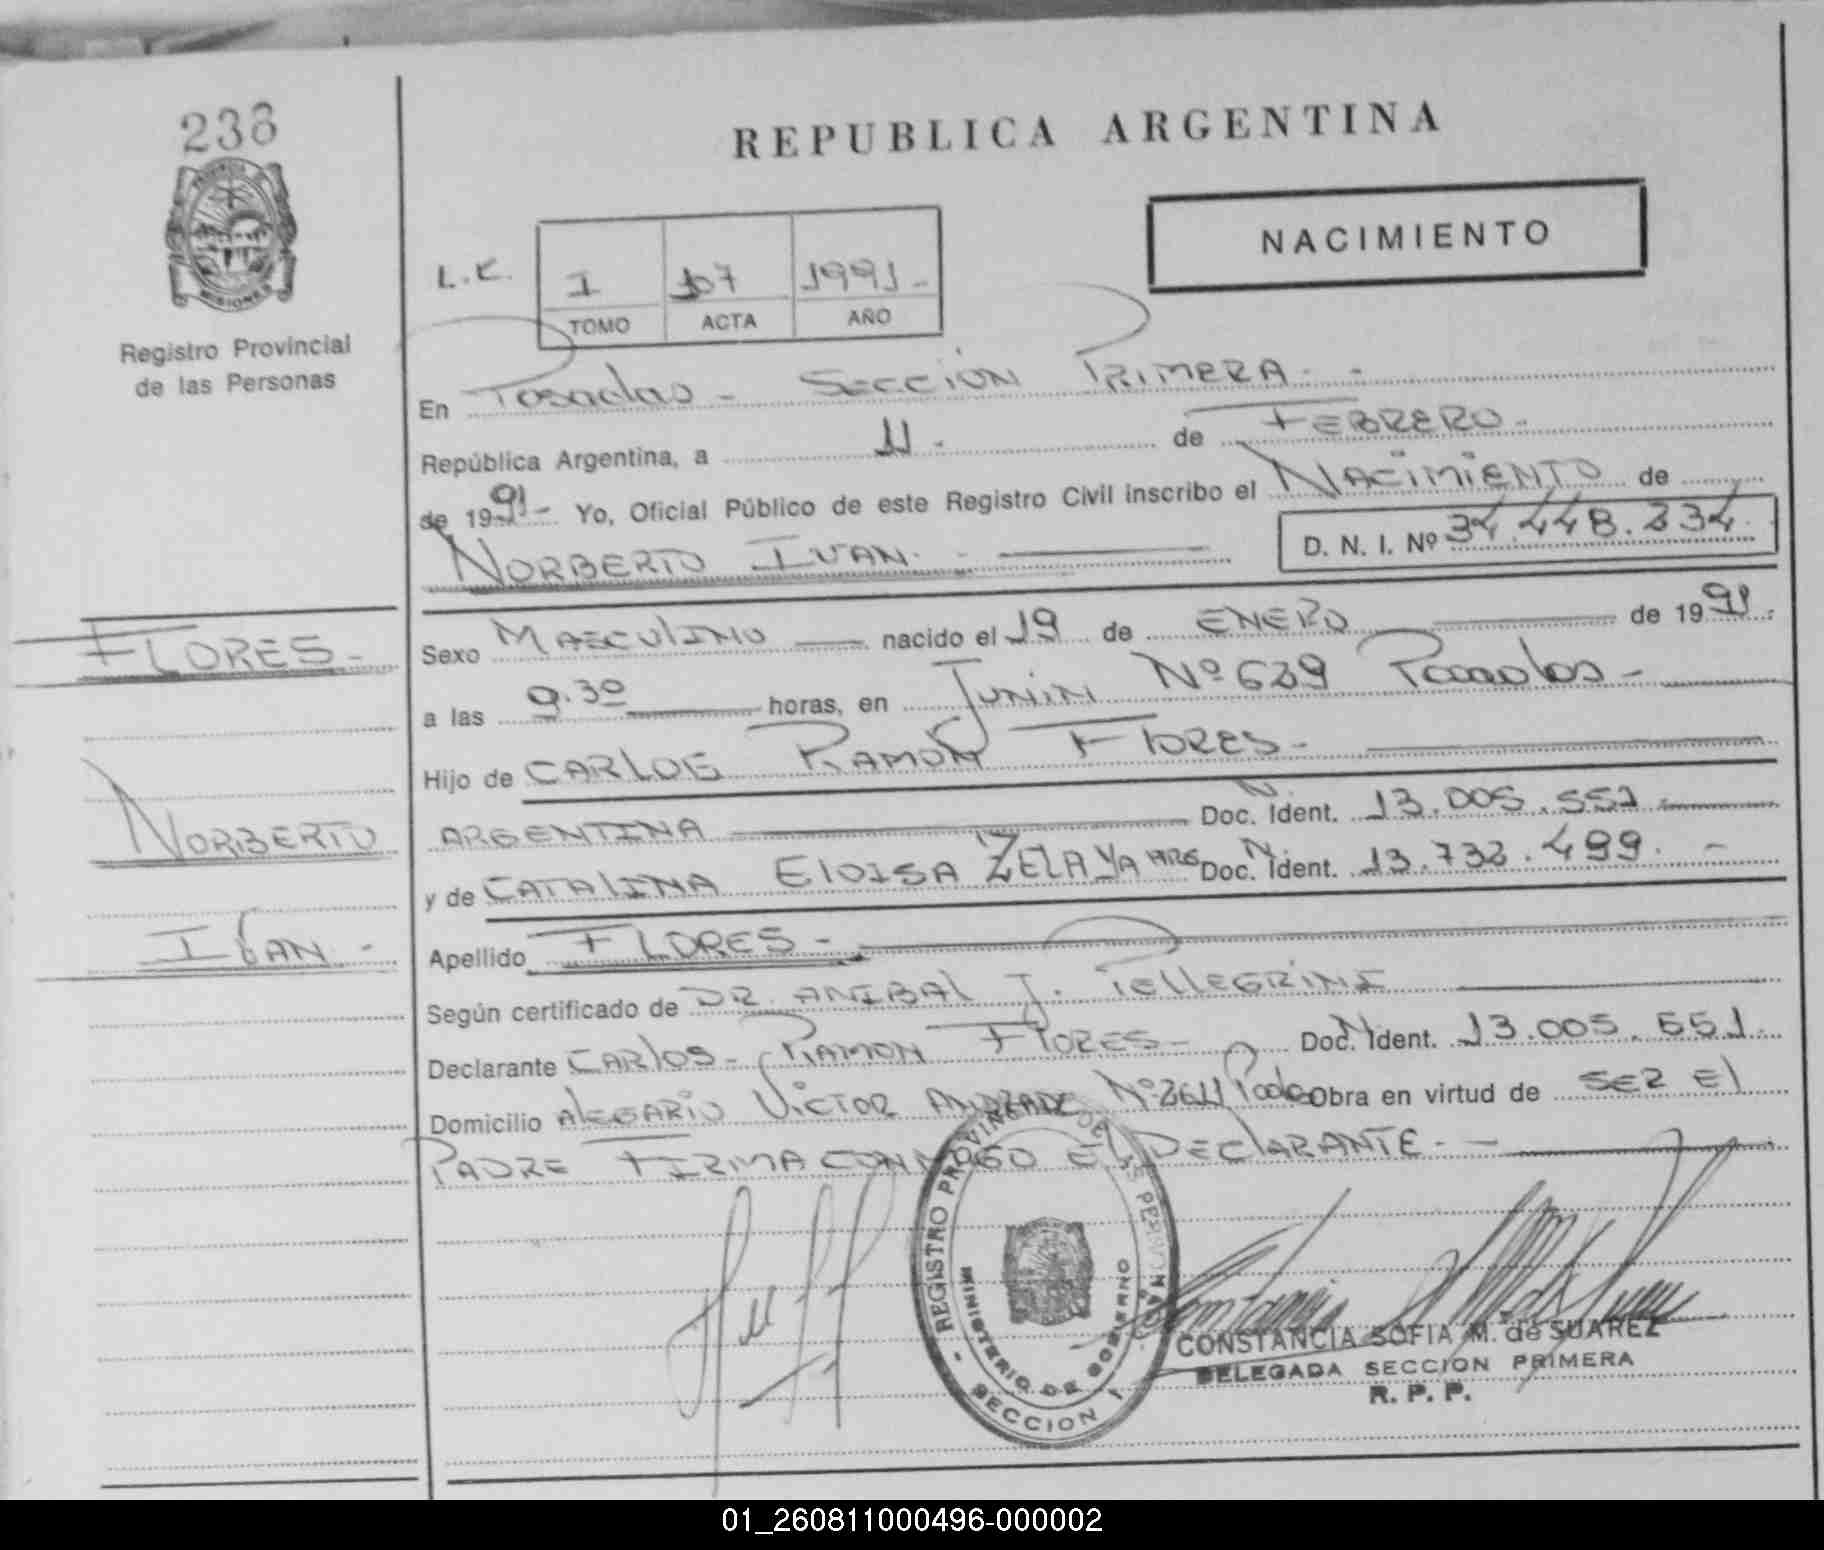 238
PROVINCIA DE
MISIONES
Registro Provincial
de las Personas
REPUBLICA ARGENTINA
NACIMIENTO
L.E. I 107 1991-
TOMO ACTA AÑO
En Posadas - SECCION PRIMERA. -
República Argentina, a 11. de FEBRERO.
de 1991- Yo, Oficial Público de este Registro Civil inscribo el NACIMIENTO de
NORBERTO IVAN. D. N. I. Nº 34.448.334.
FLORES-
NORBERTO
IVAN-
Sexo MASCULINO nacido el 19 de ENERO de 1991.
a las 9.30 horas, en JUNIN Nº 639 Posadas-
Hijo de CARLOS RAMON FLORES-
ARGENTINA Doc. N. Ident. 13.005.551
y de CATALINA ELOISA ZELAYA ARG Doc. N. Ident. 13.732.499. -
Apellido FLORES-
Según certificado de DR. ANIBAL J. PELLEGRINI
Declarante CARLOS- RAMON FLORES- Doc. N. Ident. 13.005.551.
Domicilio OLEGARIO VICTOR ANDRADE Nº 2611 Pdas Obra en virtud de SER EL
PADRE FIRMA CONMIGO EL DECLARANTE- -
- REGISTRO PROVINCIAL DE LAS PERSONAS -
MINISTERIO DE GOBIERNO
SECCION 1
CONSTANCIA SOFIA M. de SUAREZ
DELEGADA SECCION PRIMERA
R. P. P.
01_260811000496-000002